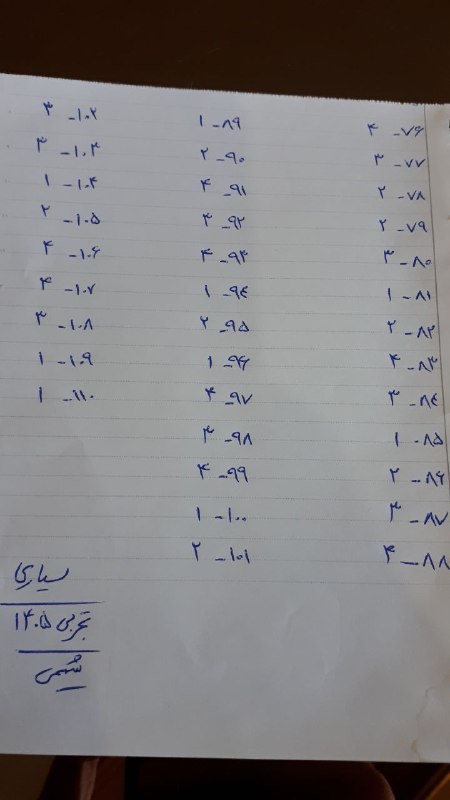 ۷۶- ۴
۷۷- ۳
۷۸- ۲
۷۹- ۲
۸۰- ۳
۸۱- ۱
۸۲- ۲
۸۳- ۴
۸۴- ۳
۸۵- ۱
۸۶- ۲
۸۷- ۳
۸۸- ۴
۸۹- ۱
۹۰- ۲
۹۱- ۴
۹۲- ۳
۹۳- ۴
۹۴- ۱
۹۵- ۲
۹۶- ۱
۹۷- ۴
۹۸- ۳
۹۹- ۴
۱۰۰- ۱
۱۰۱- ۲
۱۰۲- ۳
۱۰۳- ۳
۱۰۴- ۱
۱۰۵- ۲
۱۰۶- ۴
۱۰۷- ۴
۱۰۸- ۳
۱۰۹- ۱
۱۱۰- ۱
سیاری
تجربی ۱۴۰۵
شیمی